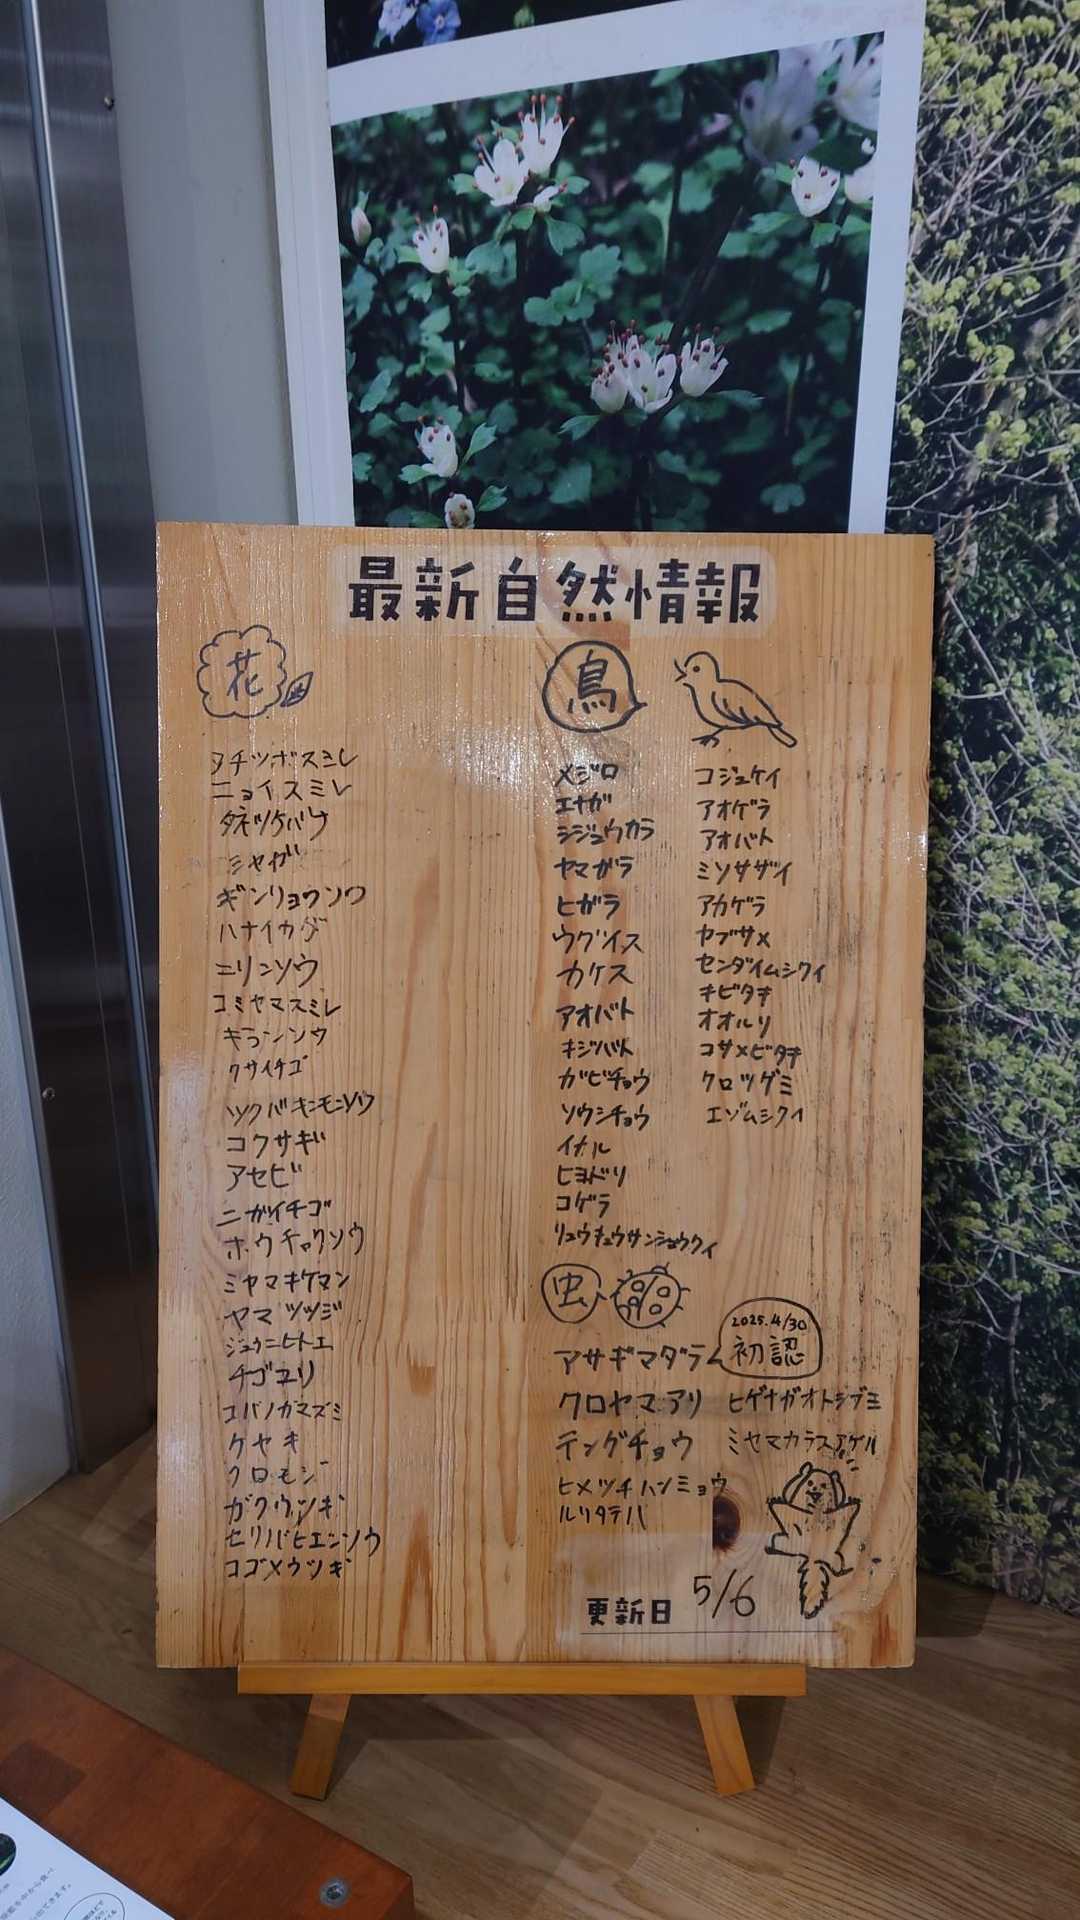 最新自然情報
花
タチツボスミレ
ニョイスミレ
タネツケバナ
シャガ
ギンリョウソウ
ハナイカダ
ニリンソウ
コミヤマスミレ
キランソウ
クサイチゴ
ツクバキンモンソウ
コクサギ
アセビ
ニガイチゴ
ホウチャクソウ
ミヤマキケマン
ヤマツツジ
ジュウニヒトエ
チゴユリ
コバノガマズミ
ケヤキ
クロモジ
ガクウツギ
セリバヒエンソウ
コゴメウツギ
鳥
メジロ
エナガ
シジュウカラ
ヤマガラ
ヒガラ
ウグイス
カケス
アオバト
キジバト
ガビチョウ
ソウシチョウ
イカル
ヒヨドリ
コゲラ
リュウキュウサンショウクイ
コジュケイ
アオゲラ
アオバト
ミソサザイ
アカゲラ
ヤブサメ
センダイムシクイ
キビタキ
オオルリ
コサメビタキ
クロツグミ
エゾムシクイ
虫
アサギマダラ
2025.4/30
初認
クロヤマアリ
テングチョウ
ヒメツチハンミョウ
ルリタテハ
ヒゲナガオトシブミ
ミヤマカラスアゲハ
更新日 5/6